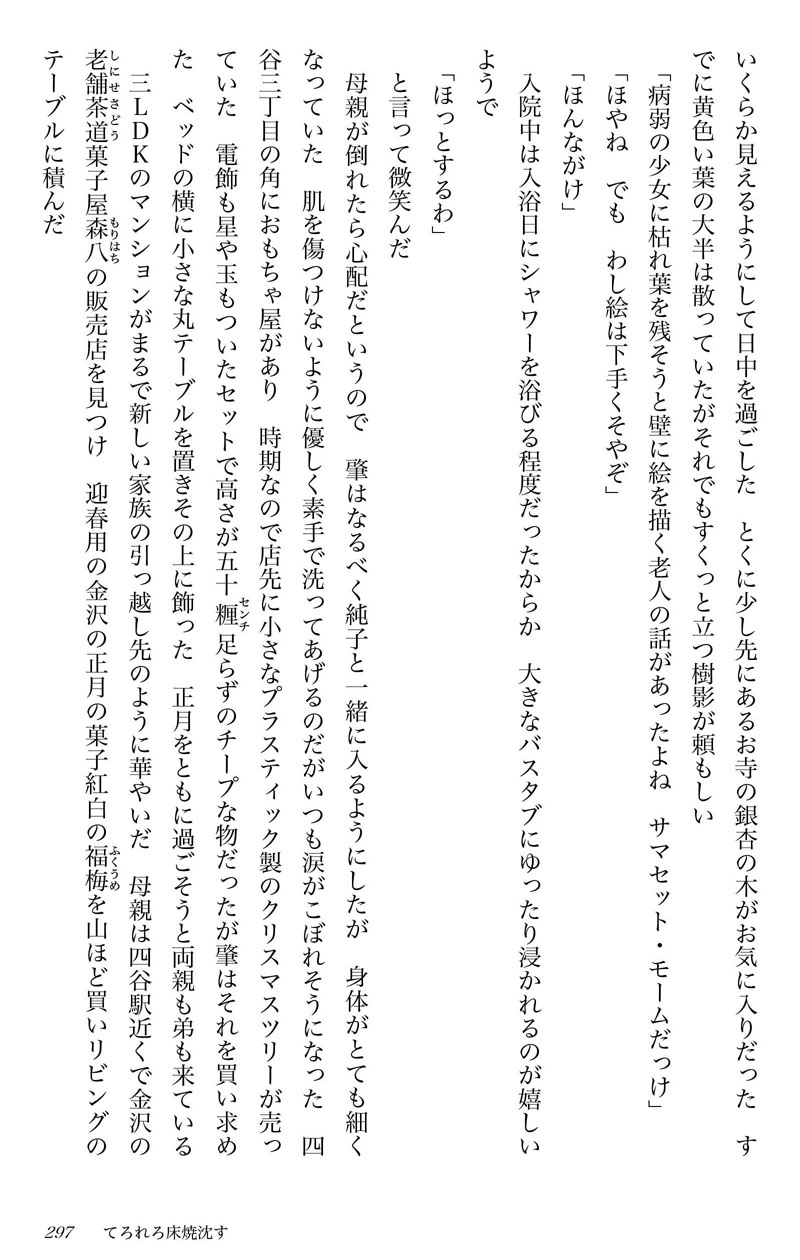 いくらか見えるようにして日中を過ごした　とくに少し先にあるお寺の銀杏の木がお気に入りだった　す
でに黄色い葉の大半は散っていたがそれでもすくっと立つ樹影が頼もしい
「病弱の少女に枯れ葉を残そうと壁に絵を描く老人の話があったよね　サマセット・モームだっけ」
「ほやね　でも　わし絵は下手くそやぞ」
「ほんながけ」
入院中は入浴日にシャワーを浴びる程度だったからか　大きなバスタブにゆったり浸かれるのが嬉しい
ようで
「ほっとするわ」
と言って微笑んだ
母親が倒れたら心配だというので　肇はなるべく純子と一緒に入るようにしたが　身体がとても細く
なっていた　肌を傷つけないように優しく素手で洗ってあげるのだがいつも涙がこぼれそうになった　四
谷三丁目の角におもちゃ屋があり　時期なので店先に小さなプラスティック製のクリスマスツリーが売っ
ていた　電飾も星や玉もついたセットで高さが五十糎センチ足らずのチープな物だったが肇はそれを買い求め
た　ベッドの横に小さな丸テーブルを置きその上に飾った　正月をともに過ごそうと両親も弟も来ている
三LDKのマンションがまるで新しい家族の引っ越し先のように華やいだ　母親は四谷駅近くで金沢の
老舗しにせ茶道さどう菓子屋森八もりはちの販売店を見つけ　迎春用の金沢の正月の菓子紅白の福梅ふくうめを山ほど買いリビングの
テーブルに積んだ
297　てろれろ床焼沈す